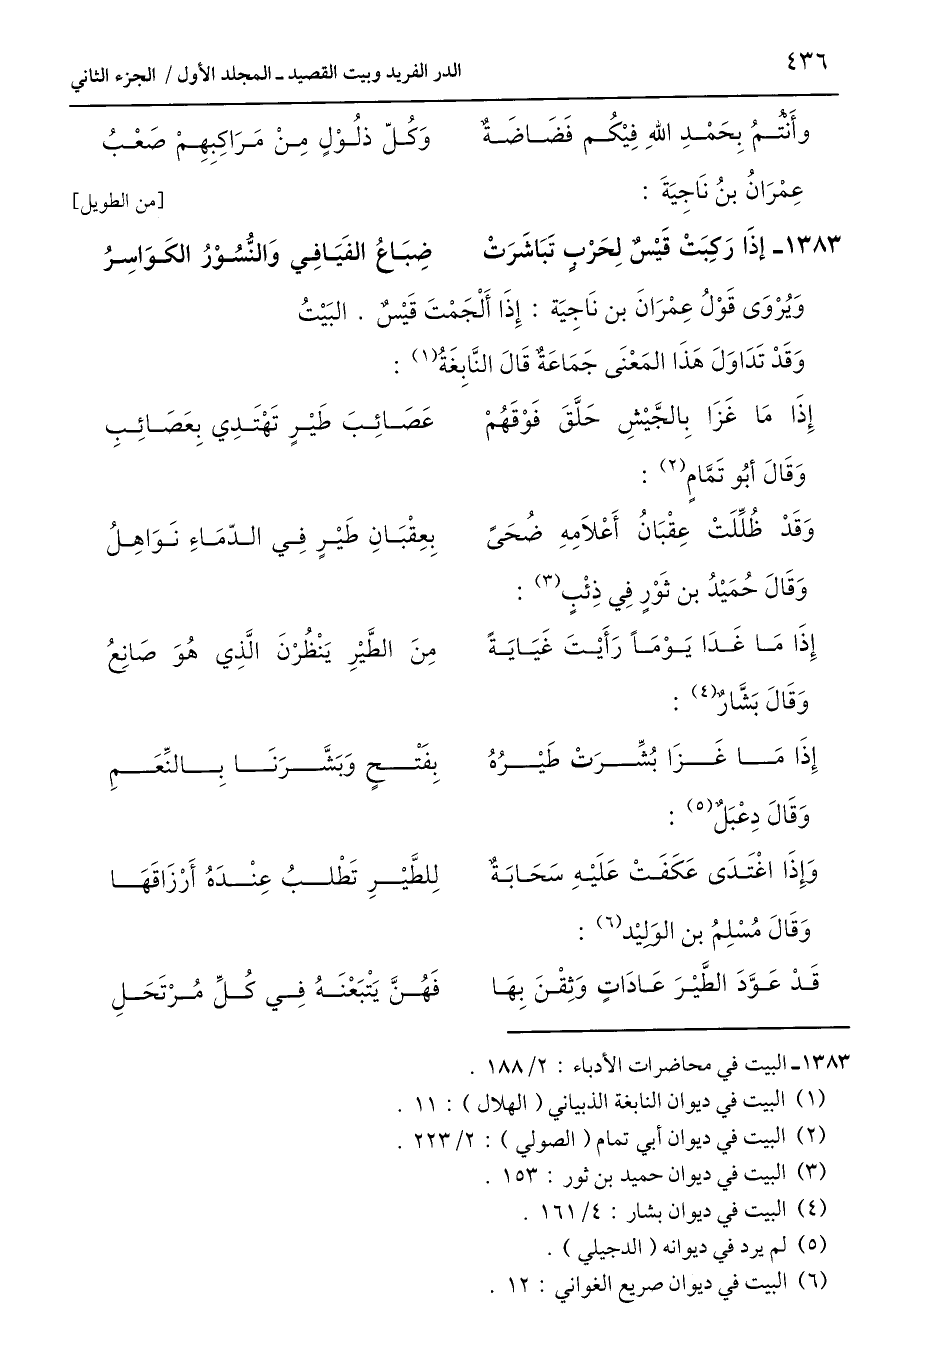 ٤٣٦ الدر الفريد وبيت القصيد ـ المجلد الأول / الجزء الثاني
وأَنْتُمُ بِحَمْدِ اللهِ فِيْكُم فَضَاضَةٌ وَكُلّ ذلُوْلٍ مِنْ مَرَاكِبِهِمْ صَعْبُ
عِمْرَانُ بنُ نَاجِيَةَ : [من الطويل]
١٣٨٣ـ إِذَا رَكِبَتْ قَيْسٌ لِحَرْبٍ تَبَاشَرَتْ ضِبَاعُ الفَيَافِي وَالنُّسُوْرُ الكَوَاسِرُ
وَيُرْوَى قَوْلُ عِمْرَانَ بن نَاجِيَة : إِذَا أَلْجَمْتَ قَيْسٌ . البَيْتُ
وَقَدْ تَدَاوَلَ هَذَا المَعْنَى جَمَاعَةٌ قَالَ النَّابِغَةُ(١) :
إِذَا مَا غَزَا بِالجَّيْشِ حَلَّقَ فَوْقَهُمْ عَصَائِبَ طَيْرٍ تَهْتَدِي بِعَصَائِبِ
وَقَالَ أَبُو تَمَّامٍ(٢) :
وَقَدْ ظُلِّلَتْ عِقْبَانُ أَعْلاَمِهِ ضُحَىً بِعِقْبَانِ طَيْرٍ فِي الدّمَاءِ نَوَاهِلُ
وَقَالَ حُمَيْدُ بن ثَوْرٍ فِي ذِئْبٍ(٣) :
إِذَا مَا غَدَا يَوْمَاً رَأَيْتَ غَيَايَةً مِنَ الطَّيْرِ يَنْظُرْنَ الَّذِي هُوَ صَانِعُ
وَقَالَ بَشَّارٌ(٤) :
إِذَا مَا غَزَا بُشِّرَتْ طَيْرُهُ بِفَتْحٍ وَبَشَّرَنَا بِالنِّعَمِ
وَقَالَ دِعْبَلٌ(٥) :
وَإِذَا اغْتَدَى عَكَفَتْ عَلَيْهِ سَحَابَةٌ لِلطَّيْرِ تَطْلبُ عِنْدَهُ أَرْزَاقَهَا
وَقَالَ مُسْلِمُ بن الوَلِيْد(٦) :
قَدْ عَوَّدَ الطَّيْرَ عَادَاتٍ وَثِقْنَ بِهَا فَهُنَّ يَتْبَعْنَهُ فِي كُلِّ مُرْتَحَلِ
١٣٨٣ـ البيت في محاضرات الأدباء : ٢/ ١٨٨ .
(١) البيت في ديوان النابغة الذبياني ( الهلال ) : ١١ .
(٢) البيت في ديوان أبي تمام ( الصولي ) : ٢/ ٢٢٣ .
(٣) البيت في ديوان حميد بن ثور : ١٥٣ .
(٤) البيت في ديوان بشار : ٤/ ١٦١ .
(٥) لم يرد في ديوانه ( الدجيلي ) .
(٦) البيت في ديوان صريع الغواني : ١٢ .